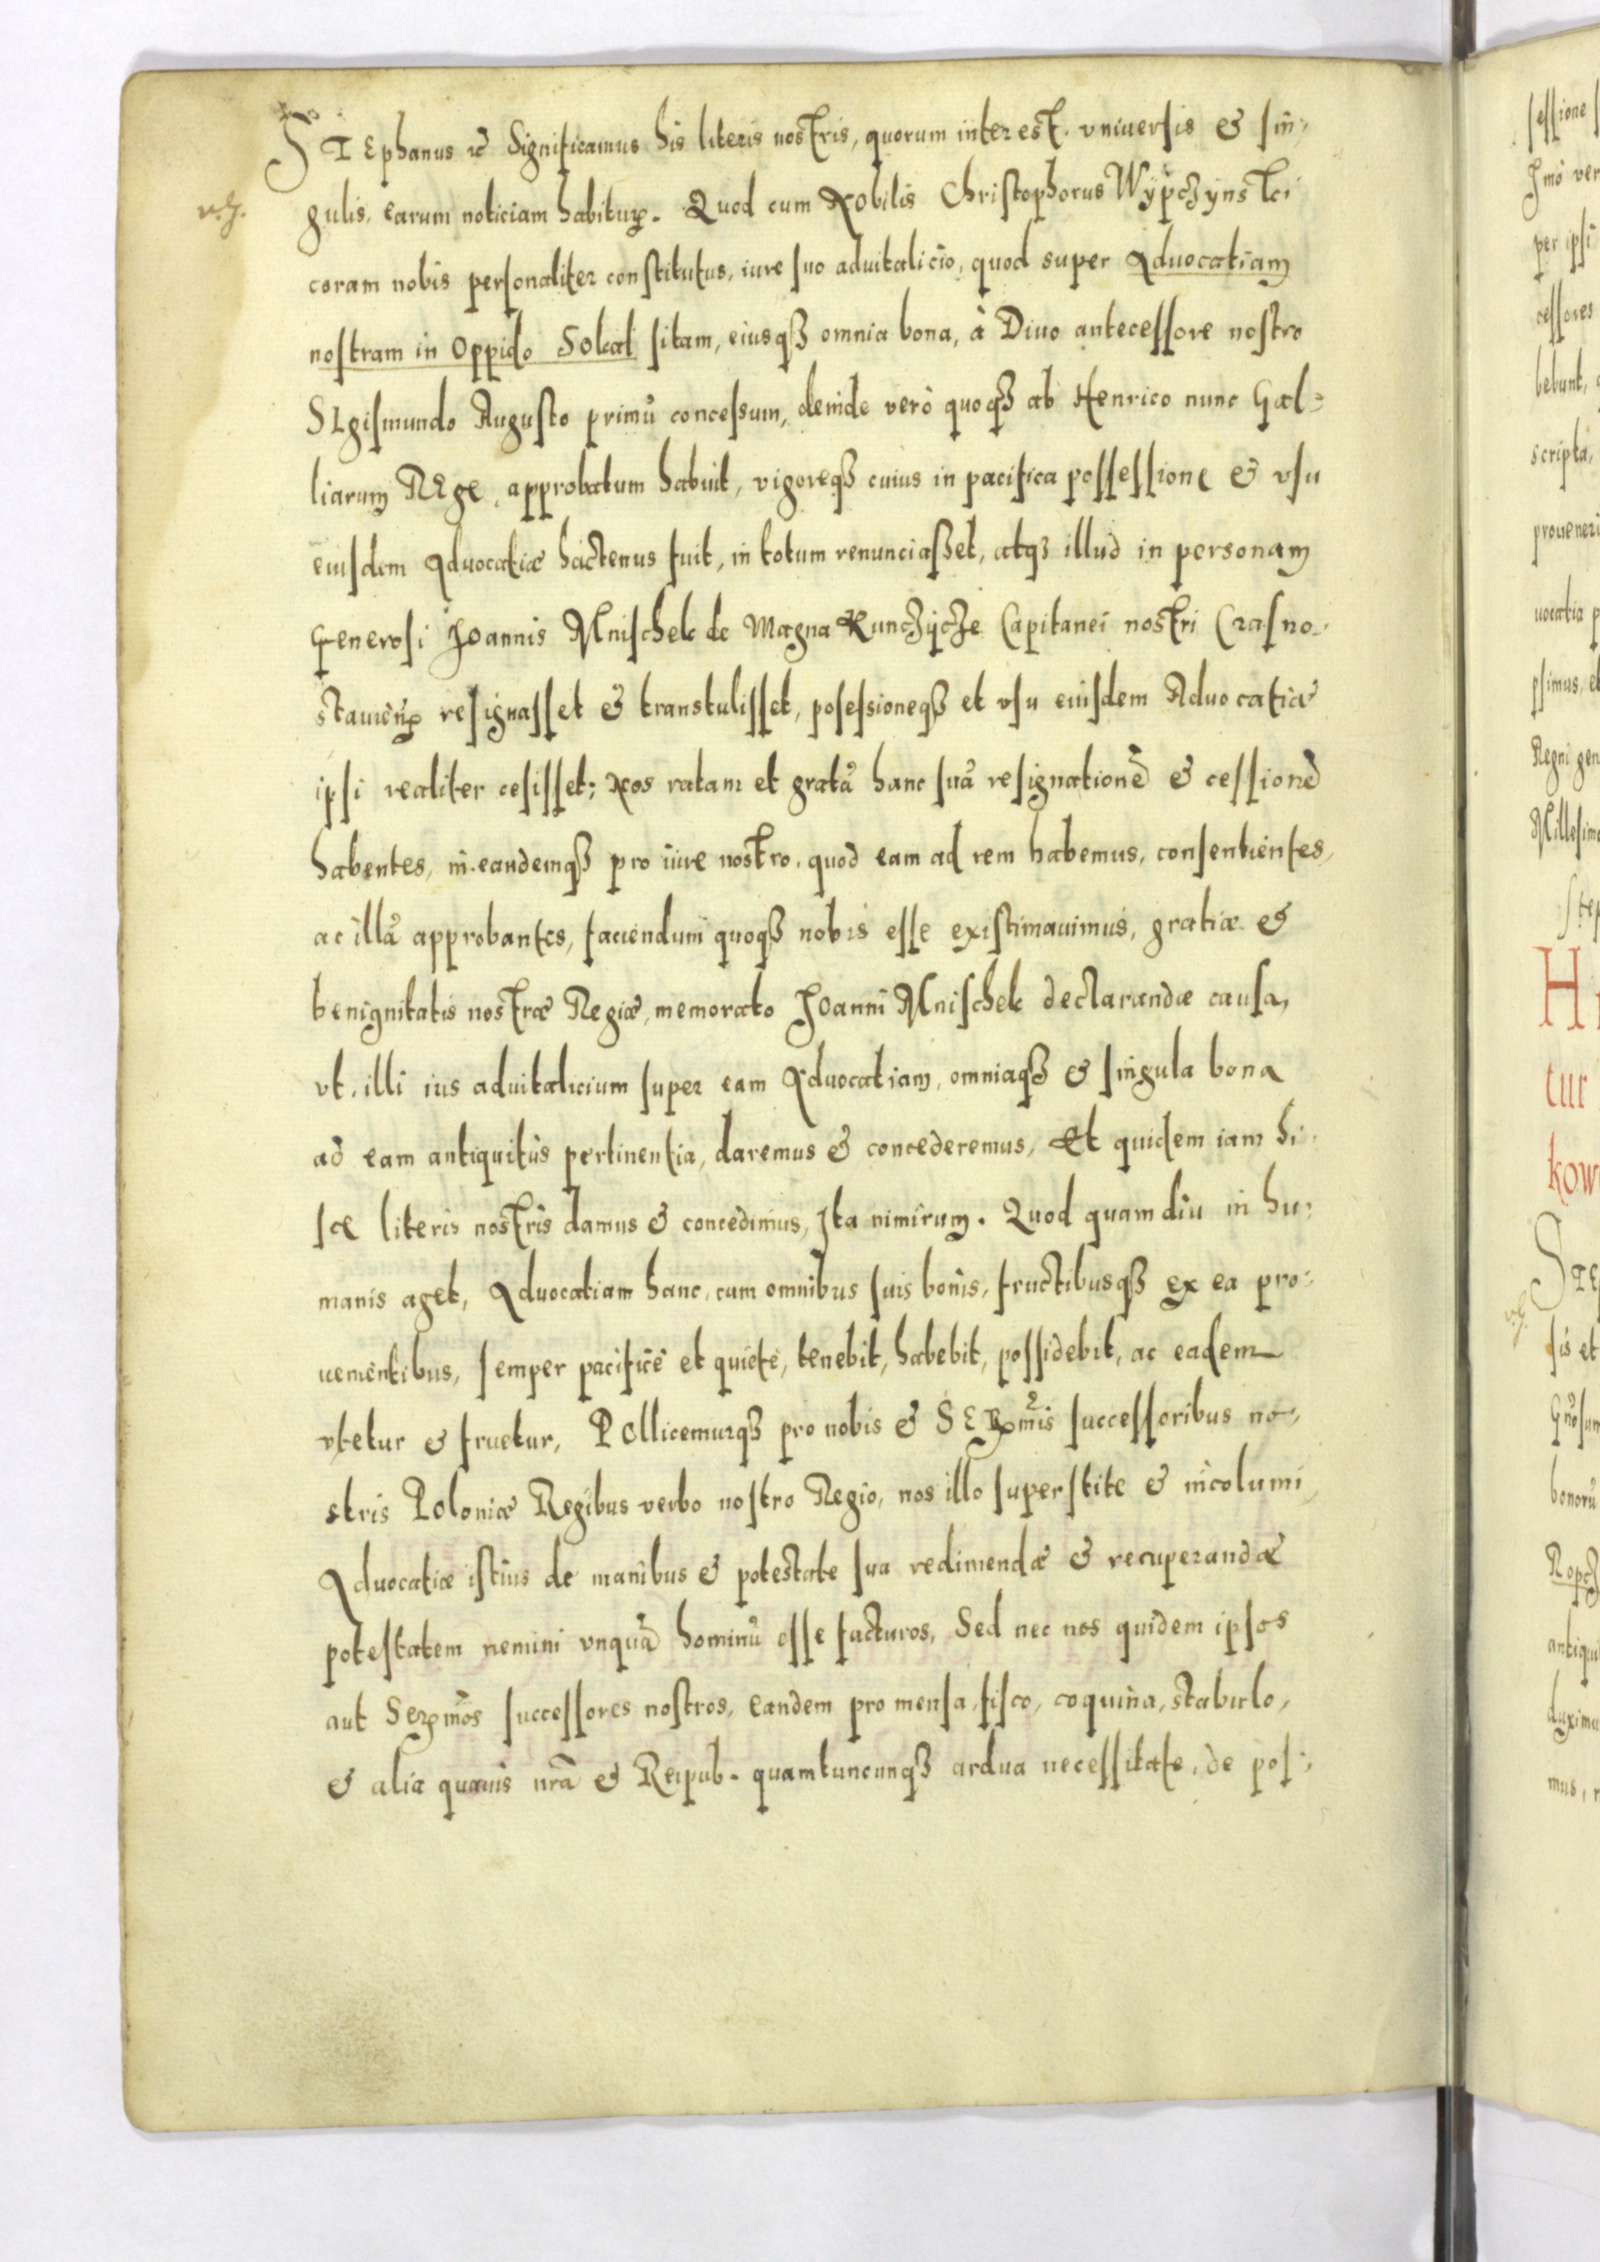 STEphanus &c Significamus his literis nostris, quorum interest. vniuersis & sin-
gulis, earum noticiam habituꝝ. Quod cum Nobilis Christophorus Wÿpcżÿnski
coram nobis personaliter constitutus, iure suo aduitalicio, quod super Aduocatiam
nostram in Oppido Sokal sitam, eiusqꝫ omnia bona, à Diuo antecessore nostro
SIgismundo Augusto primũ concessum, deinde verò quoqꝫ ab Henrico nunc Gal-
liarum REge, approbatum habuit, vigoreqꝫ cuius in pacifica possessione & vsu
eiusdem Aduocatiæ hactenus fuit, in totum renunciasset, atqꝫ illud in personam
Generosi Joannis Mnischek de Magna Kuncżÿcże Capitanei nostri Crasno-
stauieñ resignasset & transtulisset, posessioneqꝫ et vsu eiusdem Aduocatiæ
ipsi realiter cesisset; Nos ratam et gratã hanc suã resignationẽ & cessionẽ
habentes, in eandemqꝫ pro iure nostro, quod eam ad rem habemus, consentientes,
ac illã approbantes, faciendum quoqꝫ nobis esse existimauimus, gratiæ &
benignitatis nostræ Regiæ, memorato Joanni Mnischek declarandæ causa,
vt illi ius aduitalicium super eam Aduocatiam, omniaqꝫ & singula bona
ad eam antiquitùs pertinentia, daremus & concederemus, Et quidem iam hi-
sce literis nostris damus & concedimus, Ita nimirum. Quod quamdiu in hu-
manis aget, Aduocatiam hanc, cum omnibus suis bonis, fructibusqꝫ ex ea pro-
uenientibus, semper pacificè et quietè, tenebit, habebit, possidebit, ac eadem
vtetur & fruetur, POllicemurqꝫ pro nobis & SERmis successoribus no-
stris Poloniæ Regibus verbo nostro Regio, nos illo superstite & incolumi,
Aduocatiæ istius de manibus & potestate sua redimendæ & recuperandæ
potestatem nemini vnquã hominũ esse facturos, Sed nec nos quidem ipsos
aut Serꝝmos successores nostros, eandem pro mensa, fisco, coquina, stabulo,
& alia quauis nrã & Reipub. quamtuncunqꝫ ardua necessitate, de pos-